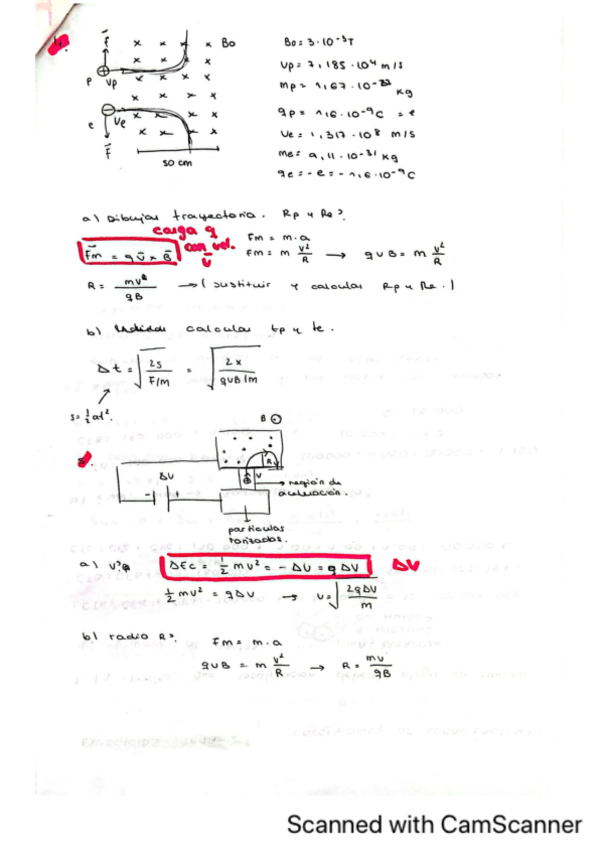 1.
F
Bo
P
Vp
e
Ve
F
50 cm
Bo = 3·10⁻³T
Vp = 7,185·10⁴ m/s
mp = 1,67·10⁻²⁷ kg
qp = 1,6·10⁻¹⁹C = e
Ve = 1,317·10⁸ m/s
me = 9,11·10⁻³¹ kg
qe = -e = -1,6·10⁻¹⁹C
a) Dibujar trayectoria. Rp y Re?
carga q
con vel. v
Fm = q v x B
Fm = m·a
Fm = m v²/R → qvB = m v²/R
R = mv²/qB → (sustituir y calcular Rp y Re.)
b) calcular tp y te.
Δt = √(2s/F/m) = √(2x/qvB/m)
s = ½at².
2.
B
ΔU
R
v
región de
aceleración.
partículas
ionizadas.
a) v?
ΔEc = ½mv² = -ΔU = qΔV
ΔU
½mv² = qΔV → v = √(2qΔV/m)
b) radio R?
Fm = m·a
qvB = m v²/R → R = mv/qB
Scanned with CamScanner